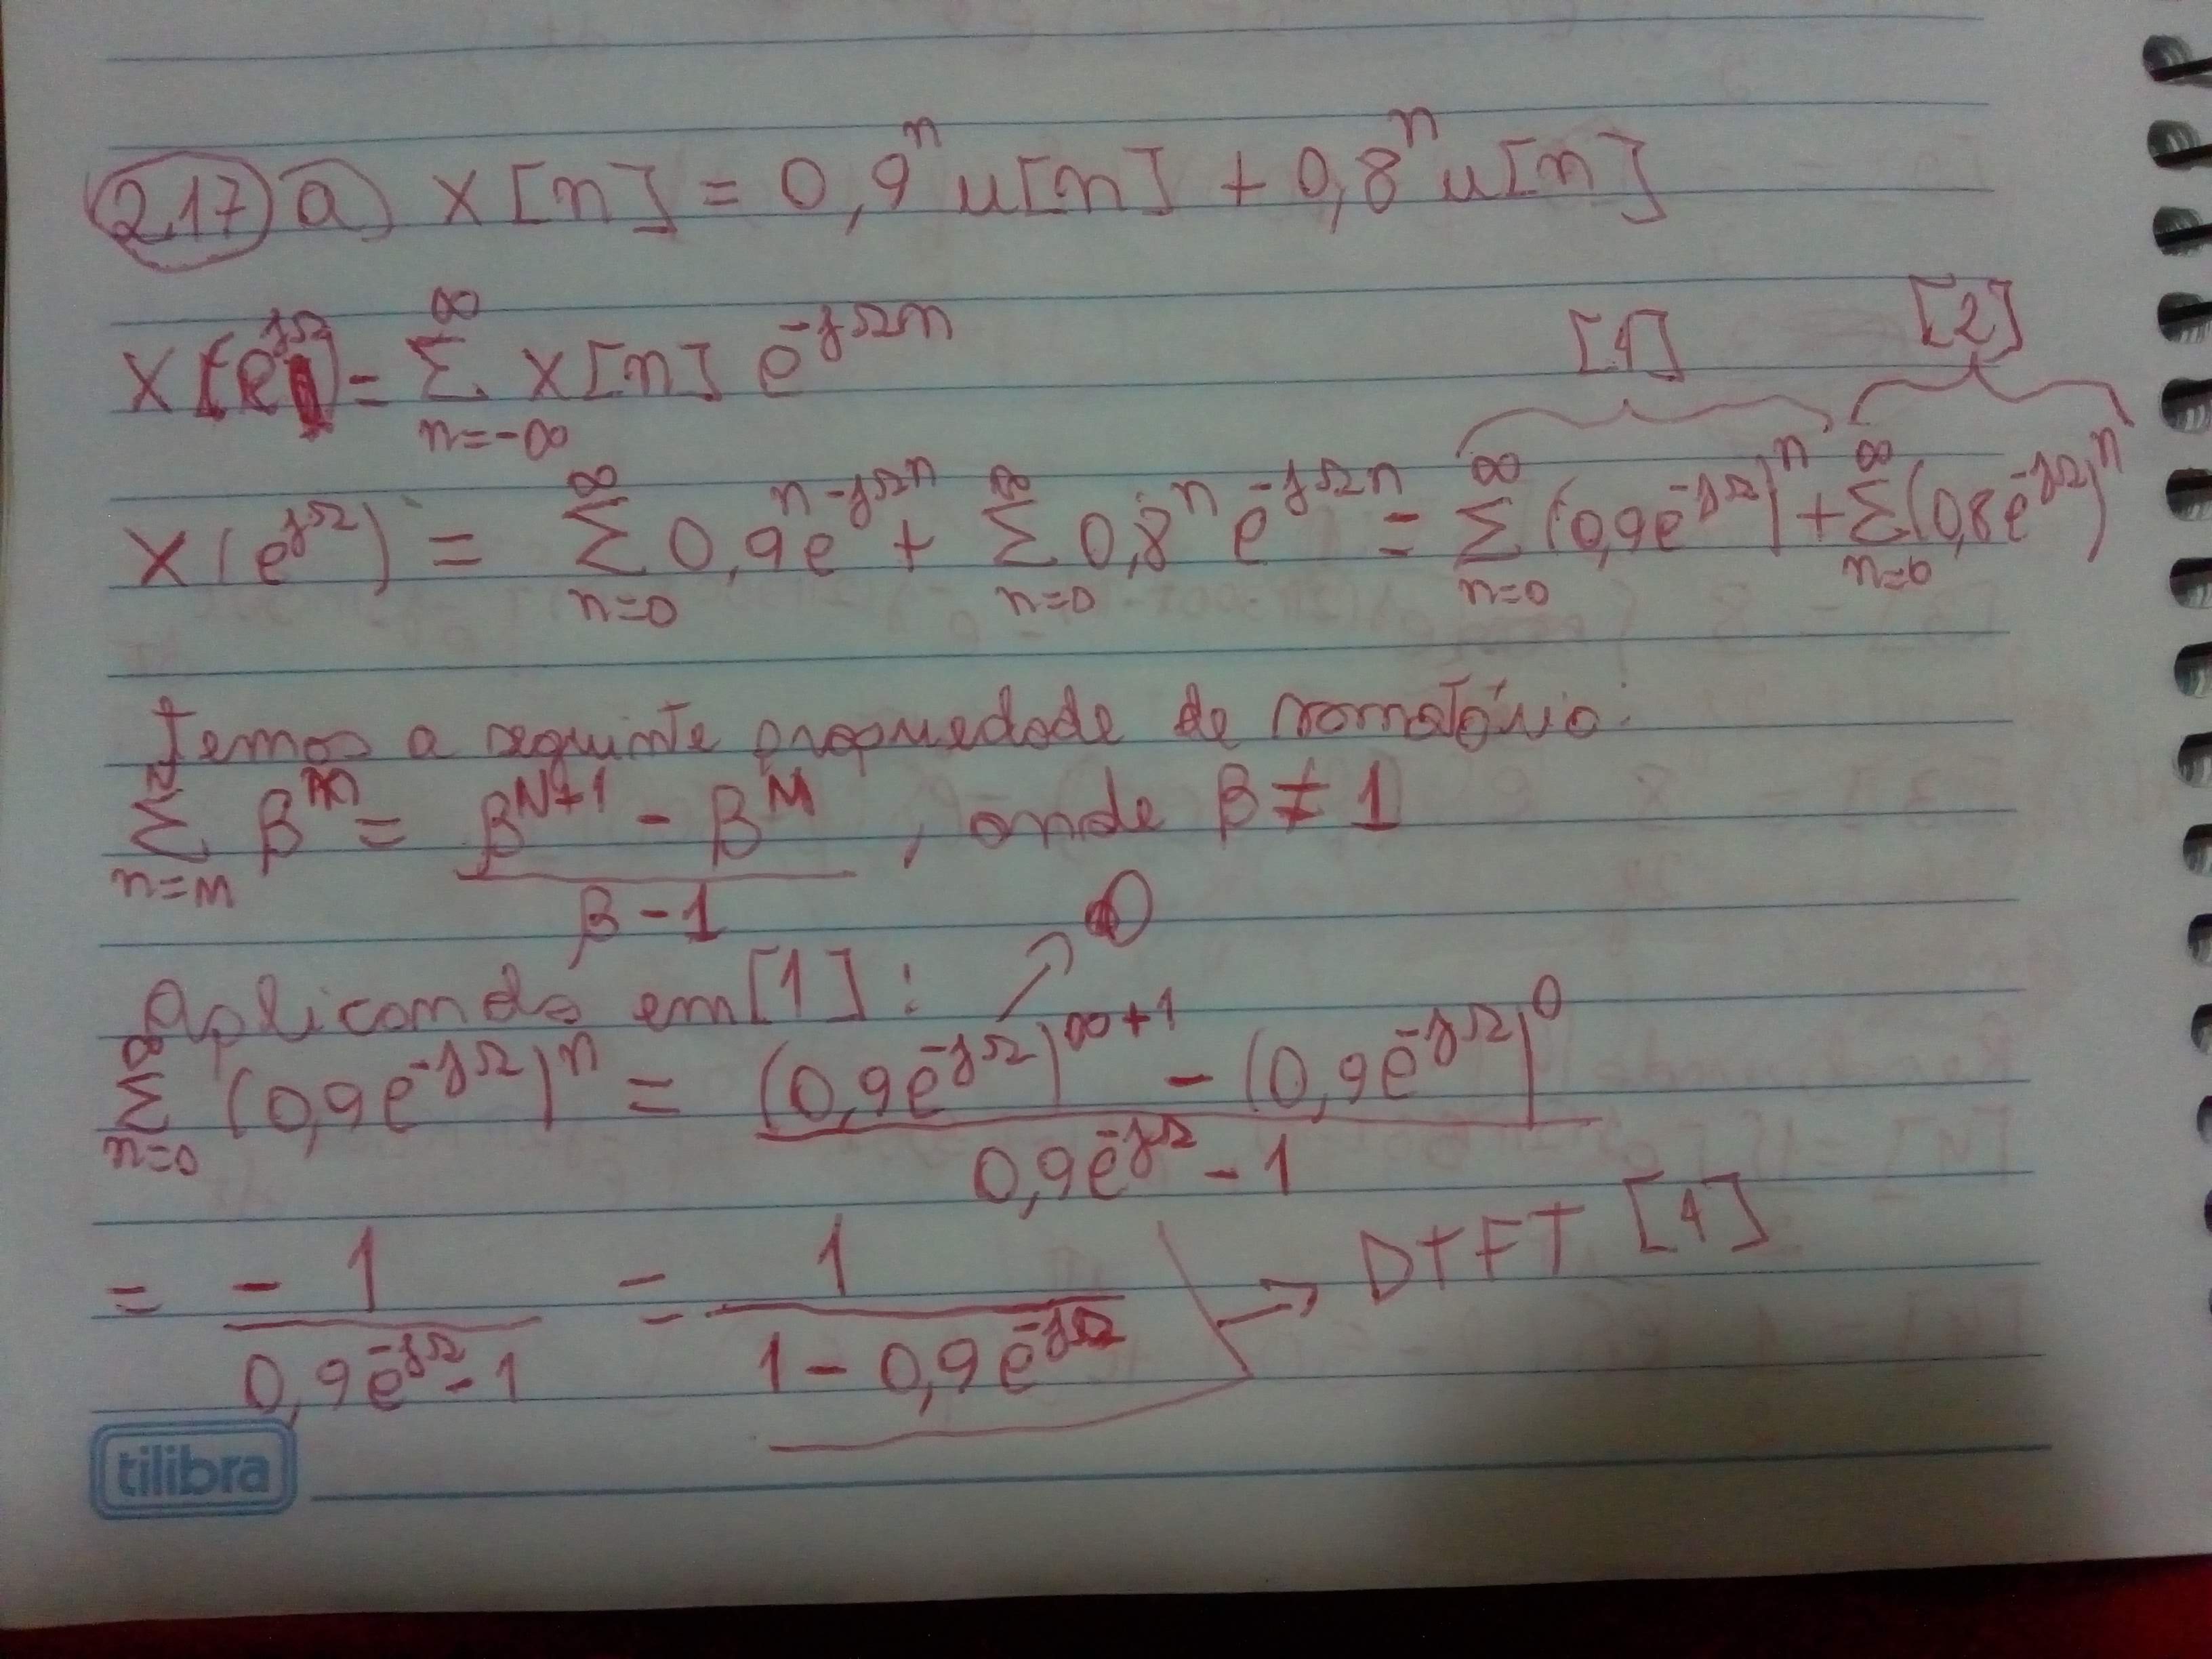 2.17 a) x[n] = 0,9^n u[n] + 0,8^n u[n]
X[e^{jΩ}] = Σ_{n=-∞}^{∞} x[n] e^{-jΩn}
[1] [2]
X(e^{jΩ}) = Σ_{n=0}^{∞} 0,9^n e^{-jΩn} + Σ_{n=0}^{∞} 0,8^n e^{-jΩn} = Σ_{n=0}^{∞} (0,9e^{-jΩ})^n + Σ_{n=0}^{∞} (0,8e^{-jΩ})^n
Temos a seguinte propriedade de somatório:
Σ_{n=M}^{N} β^n = (β^{N+1} - β^M)/(β-1), onde β ≠ 1
Aplicando em [1]: ↗ 0
Σ_{n=0}^{∞} (0,9e^{-jΩ})^n = ((0,9e^{-jΩ})^{∞+1} - (0,9e^{-jΩ})^0)/(0,9e^{-jΩ} - 1)
= -1/(0,9e^{-jΩ} - 1) = 1/(1 - 0,9e^{-jΩ}) → DTFT [1]
tilibra